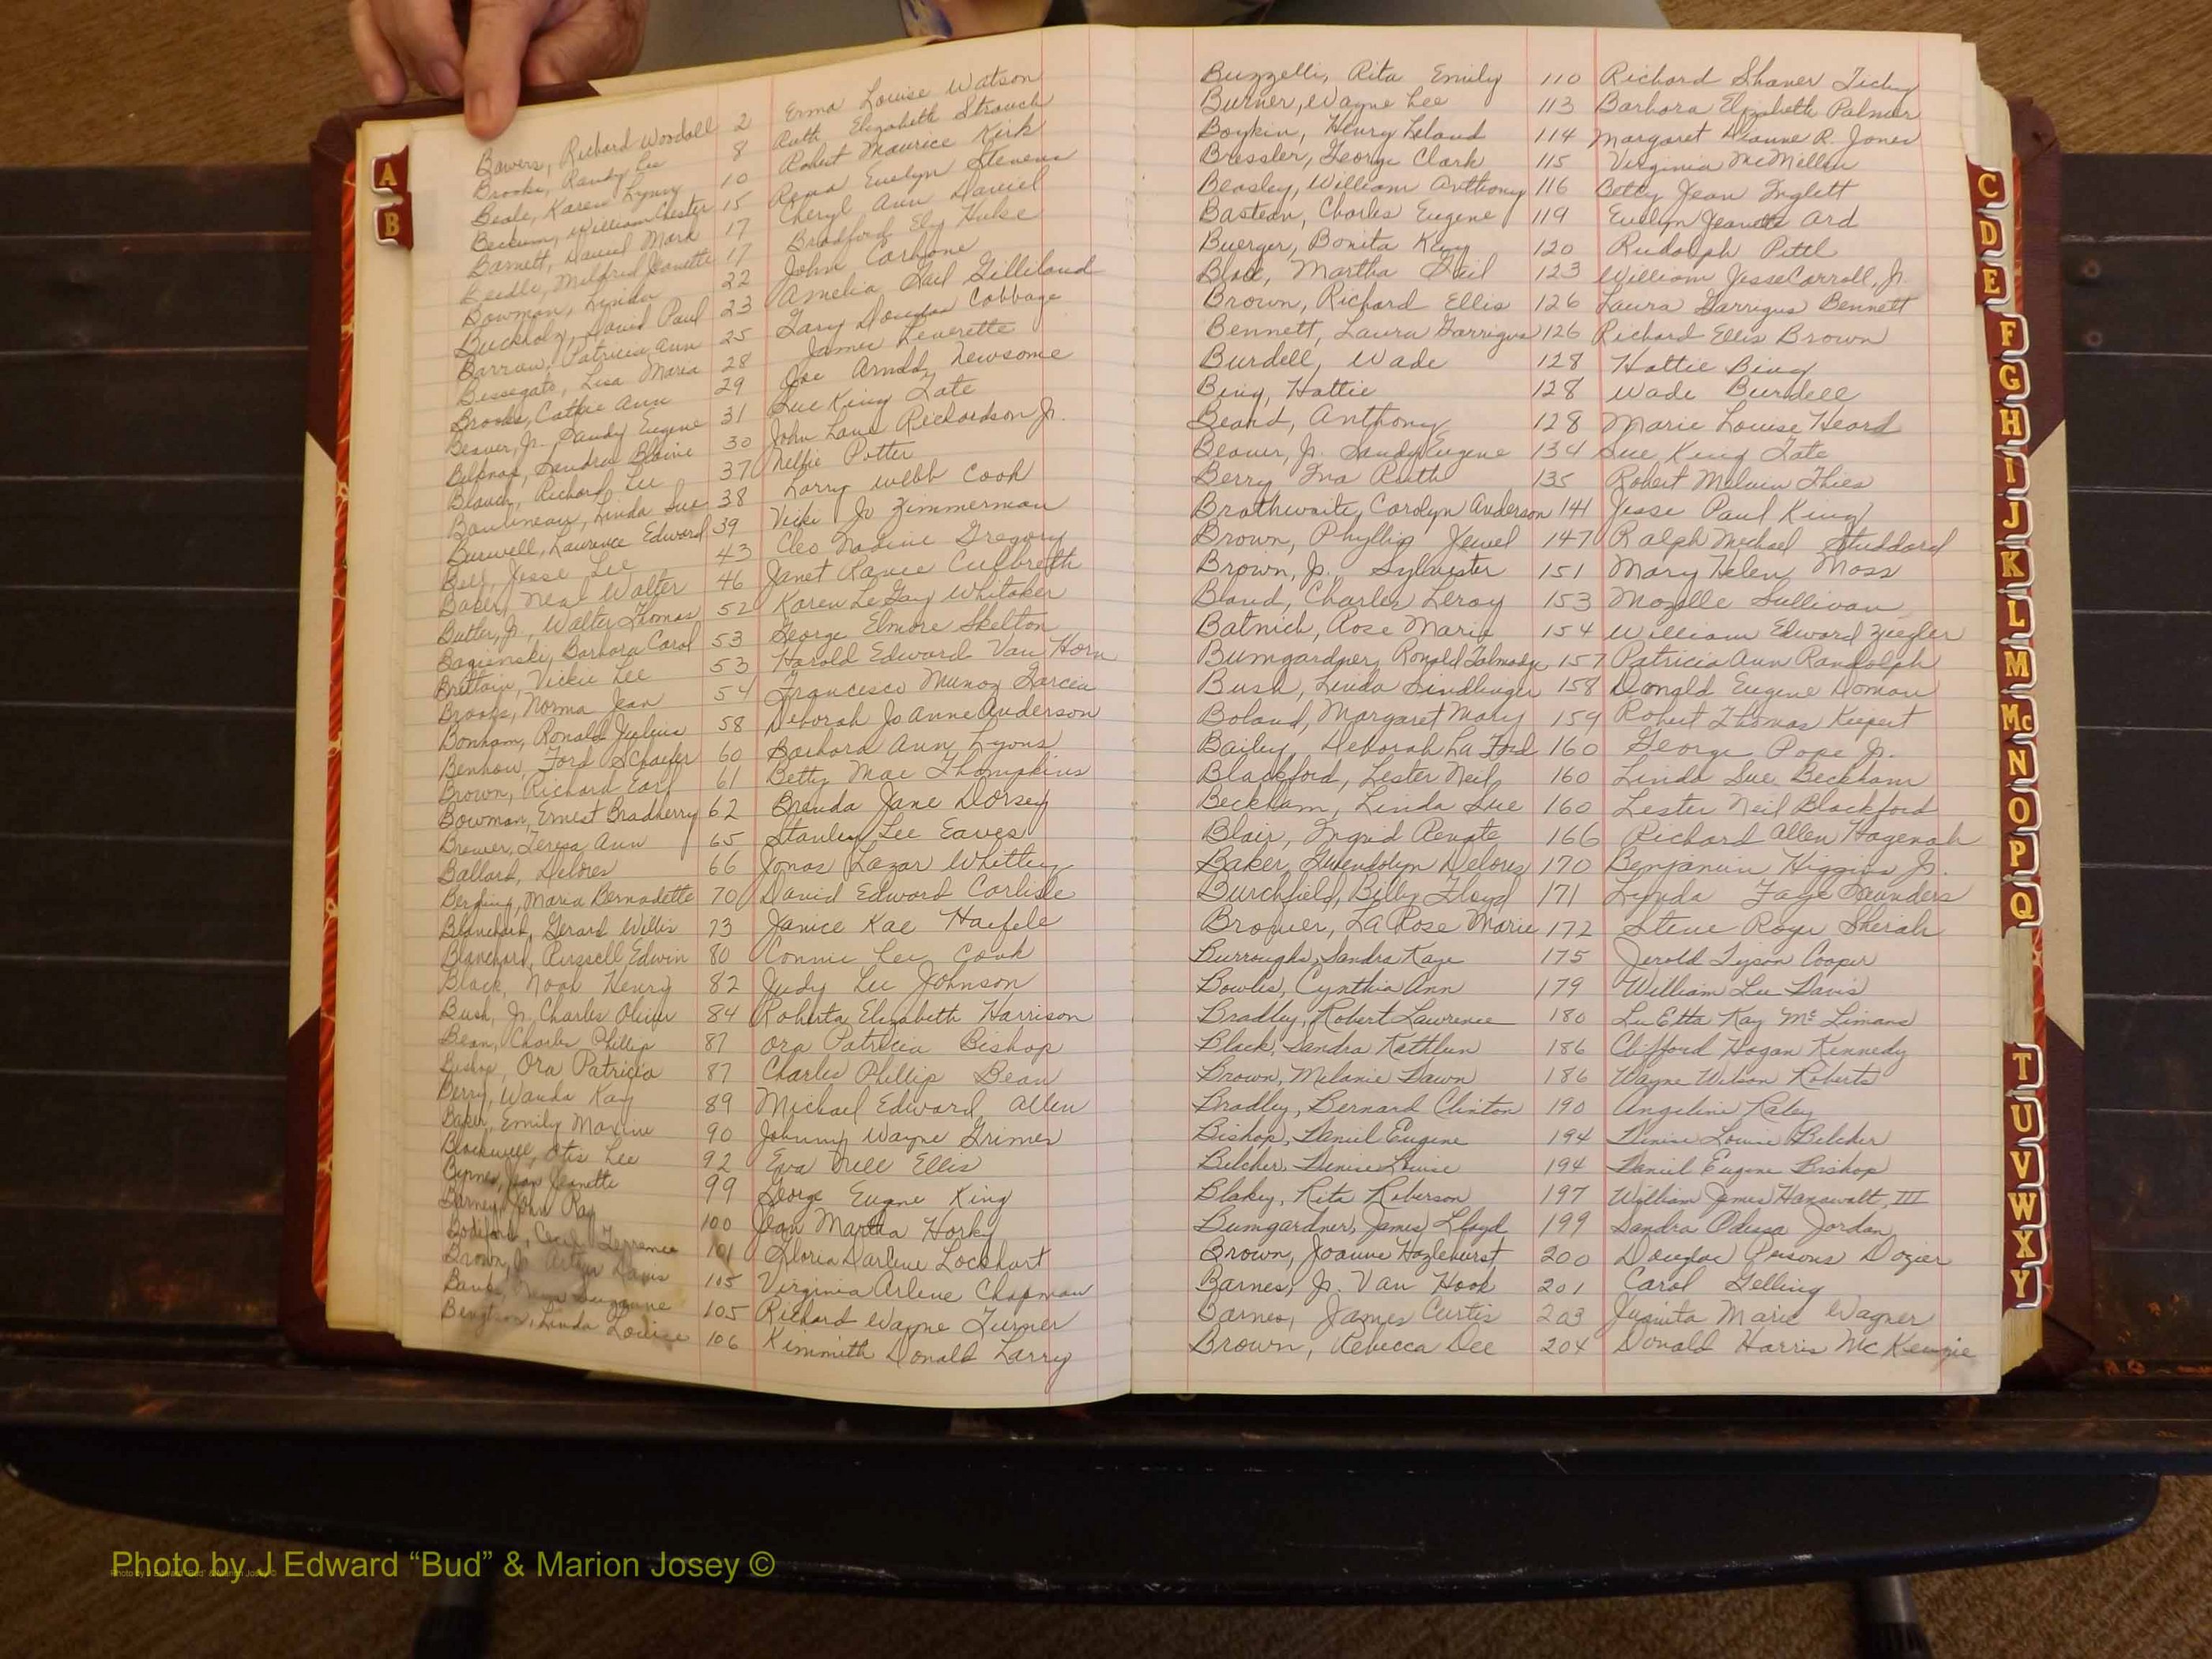 A
B
Bowers, Richard Woodall 2 Erma Louise Watson
Brooke, Randy Lee 8 Ruth Elizabeth Strauch
Beale, Karen Lynny 10 Robert Maurice Kirk
Beckum, William Chester 15 Rena Evelyn Stevens
Barnett, David Mark 17 Cheryl Ann Daniel
Beedle, Mildred Janette 17 Bradford Ely Hulse
Bowman, Linda 22 John Carbone
Buckholz, David Paul 23 Amelia Gail Gilliland
Barrow, Patricia Ann 25 Gary Douglas Cobbage
Bessegato, Lisa Maria 28 James Leverette
Brooks, Cathie Ann 29 Joe Arnold Newsome
Beaver, Jr. Sandy Eugene 31 Sue King Tate
Sandra Blaine 30 John Lane Richardson Jr.
Richard Lee 37 Nellie Potter
Bautineau, Linda Sue 38 Larry Webb Cook
Burwell, Laurence Edward 39 Vicki Jo Zimmerman
Bell, Jesse Lee 43 Cleo Nadine Gregory
Baker, Neal Walter 46 Janet Ranee Culbreth
Butler, Jr., Walter Thomas 52 Karen LeGay Whitaker
Bagienski, Barbara Carol 53 George Elmore Skelton
Brittain, Vickie Lee 53 Harold Edward Van Horn
Brooks, Norma Jean 54 Francisco Munoz Garcia
Bonham, Ronald Julius 58 Deborah Jo Anne Anderson
Benhow, Ford Schaefer 60 Barbara Ann Lyons
Brown, Richard Earl 61 Betty Mae Thompkins
Bowman, Ernest Bradberry 62 Brenda Jane Dorsey
Brewer, Teresa Ann 65 Stanley Lee Eaves
Ballard, Delores 66 Jonas Lazar Whitley
Berging, Maria Bernadette 70 David Edward Carlisle
Blanchard, Gerard Willis 73 Janice Kae Haefele
Blanchard, Russell Edwin 80 Connie Lee Cook
Black, Noah Henry 82 Judy Lee Johnson
Bush, Jr. Charles Oliver 84 Roberta Elizabeth Harrison
Bean, Charles Phillip 87 Ora Patricia Bishop
Bishop, Ora Patricia 87 Charles Phillip Bean
Berry, Wanda Kay 89 Michael Edward Allen
Baker, Emily Maxine 90 Johnny Wayne Grimes
Blackwell, Otis Lee 92 Eva Nell Ellis
Byrnes, Joan Jeanette 99 George Eugne King
Barney, John Ray 100 Jean Martha Horky
Bodiford, Cecil Terrence 101 Gloria Darlene Lockhart
Brown, Jr. Arthur Davis 105 Virginia Arlene Chapman
Suzanne 105 Richard Wayne Turner
Bengtson, Linda Louise 106 Kimmith Donald Larry
Buzzelli, Rita Emily 110 Richard Shaver
Burner, Wayne Lee 113 Barbara Elizabeth Palmer
Boykin, Henry Leland 114 Margaret Dianne R. Jones
Bressler, George Clark 115 Virginia McMillan
Beasley, William Anthony 116 Betty Jean Inglett
Bastean, Charles Eugene 119 Evelyn Jeanette Ard
Buerger, Bonita King 120 Rudolph Pittl
Martha Gail 123 William Jesse Carroll, Jr.
Brown, Richard Ellis 126 Laura Garrigus Bennett
Bennett, Laura Garrigus 126 Richard Ellis Brown
Burdell, Wade 128 Hattie Bing
Bing, Hattie 128 Wade Burdell
Beard, Anthony 128 Marie Louise Heard
Beaver, Jr. Sandy Eugene 134 Sue King Tate
Berry, Iva Ruth 135 Robert Melvin Thies
Brathwaite, Carolyn Anderson 141 Jesse Paul King
Brown, Phyllis Jewel 147 Ralph Michael Studdard
Brown, Jr. Sylvester 151 Mary Helen Moss
Band, Charles Leroy 153 Mozelle Sullivan
Batnich, Rose Marie 154 William Edward Ziegler
Bumgardner, Ronald Talmadge 157 Patricia Ann Randolph
Bush, Linda Lindlinger 158 Donald Eugene Doman
Boland, Margaret Mary 159 Robert Thomas Kiepert
Bailey, Deborah La Ford 160 George Pope Jr.
Blackford, Lester Neil 160 Linda Sue Beckham
Beckham, Linda Sue 160 Lester Neil Blackford
Blair, Ingrid Renate 166 Richard Allen Hagenah
Baker, Gwendolyn Delores 170 Benjamin Higgins Jr.
Burchfield, Billy Floyd 171 Lynda Faye Saunders
Brower, La Rose Marie 172 Steve Roger Sherah
Burroughs, Sandra Kaye 175 Jerold Tyson Cooper
Bowles, Cynthia Ann 179 William Lee Davis
Bradley, Robert Lawrence 180 Lu Etta Kay McLimans
Black, Sandra Kathleen 186 Clifford Hogan Kennedy
Brown, Melanie Dawn 186 Wayne Wilson Roberts
Bradley, Bernard Clinton 190 Angeline Raley
Bishop, Daniel Eugene 194 Denise Louise Belcher
Belcher, Denise Louise 194 Daniel Eugene Bishop
Blakey, Rita Roberson 197 William James Hanawalt, III
Bumgardner, James Lloyd 199 Sandra Odessa Jordan
Brown, Joanne Hazlehurst 200 Douglas Persons Dozier
Barnes, Jr. Van Hook 201 Carol Gelling
Barnes, James Curtis 203 Juanita Marie Wagner
Brown, Rebecca Dee 204 Donald Harris McKenzie
C
D
E
F
G
H
I
J
K
L
M
Mc
N
O
P
Q
T
U
V
W
X
Y
Photo by J Edward “Bud” & Marion Josey ©
Photo by J Edward “Bud” & Marion Josey ©